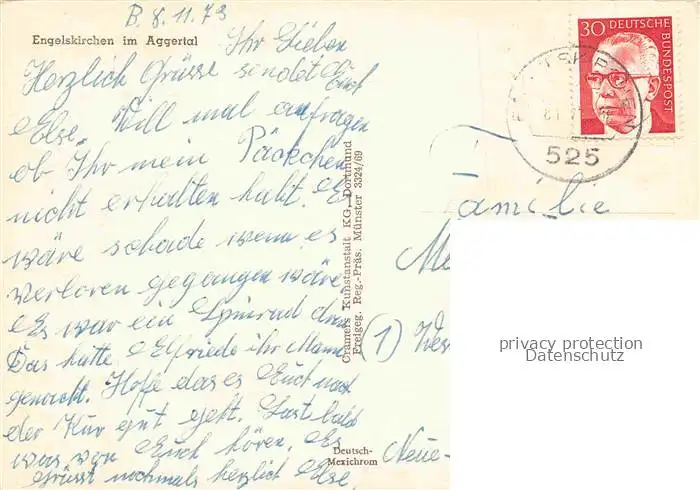 B. 8.11.73
Engelskirchen im Aggertal
Ihr Lieben
Herzlich Grüsse sendet Euch
Else. Will mal anfragen
ob Ihr mein Päckchen
nicht erhalten habt. Es
wäre schade wenn es
verloren gegangen wäre
Es war ein Spinrad drin
Das hatte Elfriede ihr Mann
gemacht. Hoffe das es Euch nach
der Kur gut geht. Last bald
was von Euch hören. Es
grüsst nochmals herzlich Else.
Cramers Kunstanstalt KG, Dortmund
Freigeg. Reg.-Präs. Münster 3324/69
Deutsch-
Mexichrom
30 DEUTSCHE
BUNDESPOST
525
Familie
(1)
Neue-
privacy protection
Datenschutz